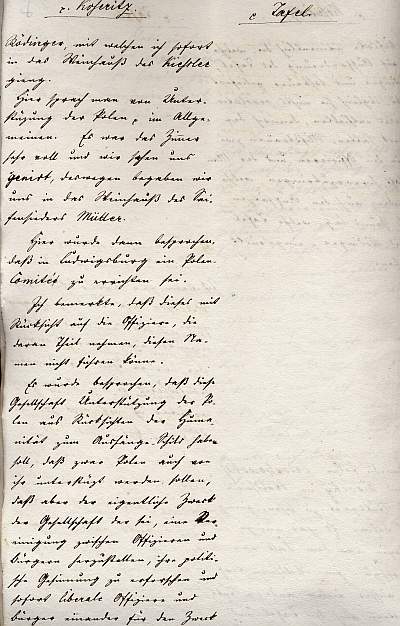 v. Koseritz.
c Tafel.
Rödinger, mit welchem ich sofort
in das Weinhauß des Kechler
gieng.
Hier sprach man von Unter-
stüzung der Polen, im Allge-
meinen. Es war das Zimer
sehr voll und wir sahen uns
genirt, deswegen begaben wir
uns in das Weinhauß des Sai-
fensieders Müller.
Hier wurde dann besprochen,
daß in Ludwigsburg ein Polen
Comités zu errichten sei.
Ich bemerkte, daß dieses mit
Rücksicht auf die Offiziere, die
daran Theil nehmen, diesen Na-
men nicht führen könne.
Es wurde besprochen, daß diese
Gesellschaft Unterstützung der Po-
len aus Rücksichten der Huma-
nität zum Aushänge-Schild haben
soll, daß zwar Polen auch von
ihr unterstüzt werden sollen,
daß aber der eigentliche Zweck
der Gesellschaft der sei, eine Ver-
einigung zwischen Offizieren und
Bürgern herzustellen, ihre politi-
sche Gesinnung zu erforschen und
sofort liberale Offiziere und
Bürger einander für den Zweck